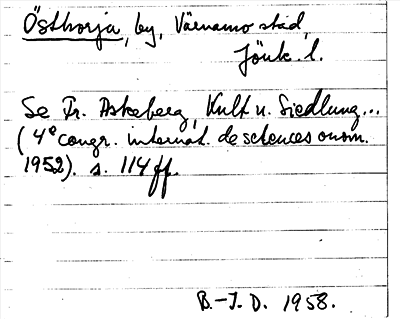 Östhorja, by, Värnamo stad,
Jönk. l.
Se Fr. Askeberg, Kult u. Siedlung...
(4° congr. internat. de sciences onom.
1952). s. 114 ff.
B.-I. D. 1958.